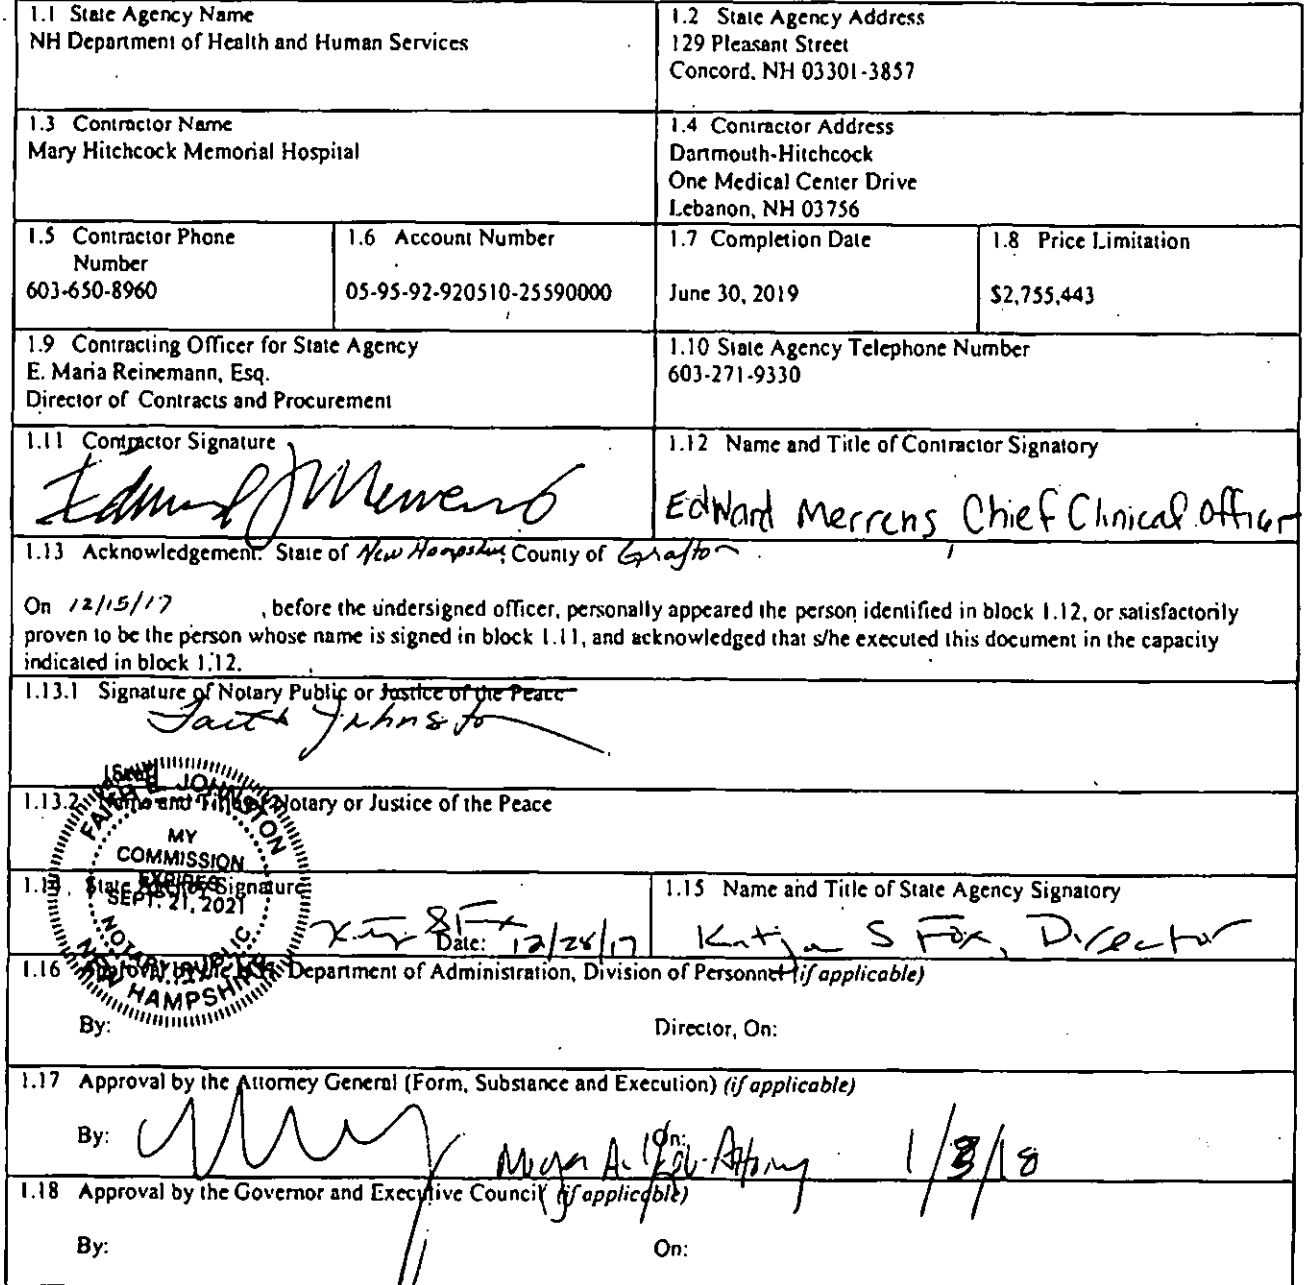 1.1 State Agency Name
NH Department of Health and Human Services
1.2 State Agency Address
129 Pleasant Street
Concord, NH 03301-3857
1.3 Contractor Name
Mary Hitchcock Memorial Hospital
1.4 Contractor Address
Dartmouth-Hitchcock
One Medical Center Drive
Lebanon, NH 03756
1.5 Contractor Phone
Number
603-650-8960
1.6 Account Number
05-95-92-920510-25590000
1.7 Completion Date
June 30, 2019
1.8 Price Limitation
$2,755,443
1.9 Contracting Officer for State Agency
E. Maria Reinemann, Esq.
Director of Contracts and Procurement
1.10 State Agency Telephone Number
603-271-9330
1.11 Contractor Signature
Edward J Merrens
1.12 Name and Title of Contractor Signatory
Edward Merrens, Chief Clinical Officer
1.13 Acknowledgement: State of New Hampshire, County of Grafton
On 12/15/17 , before the undersigned officer, personally appeared the person identified in block 1.12, or satisfactorily
proven to be the person whose name is signed in block 1.11, and acknowledged that s/he executed this document in the capacity
indicated in block 1.12.
1.13.1 Signature of Notary Public or Justice of the Peace
Faith Johnston
[Seal]
1.13.2 Name and Title of Notary or Justice of the Peace
FAITH E. JOHNSTON
MY
COMMISSION
EXPIRES
SEPT. 21, 2021
NOTARY PUBLIC
NEW HAMPSHIRE
1.14 State Agency Signature
Date: 12/28/17
1.15 Name and Title of State Agency Signatory
Katja S Fox, Director
1.16 Approval by the N.H. Department of Administration, Division of Personnel (if applicable)
By: Director, On:
1.17 Approval by the Attorney General (Form, Substance and Execution) (if applicable)
By: On: 1/8/18
1.18 Approval by the Governor and Executive Council (if applicable)
By: On: